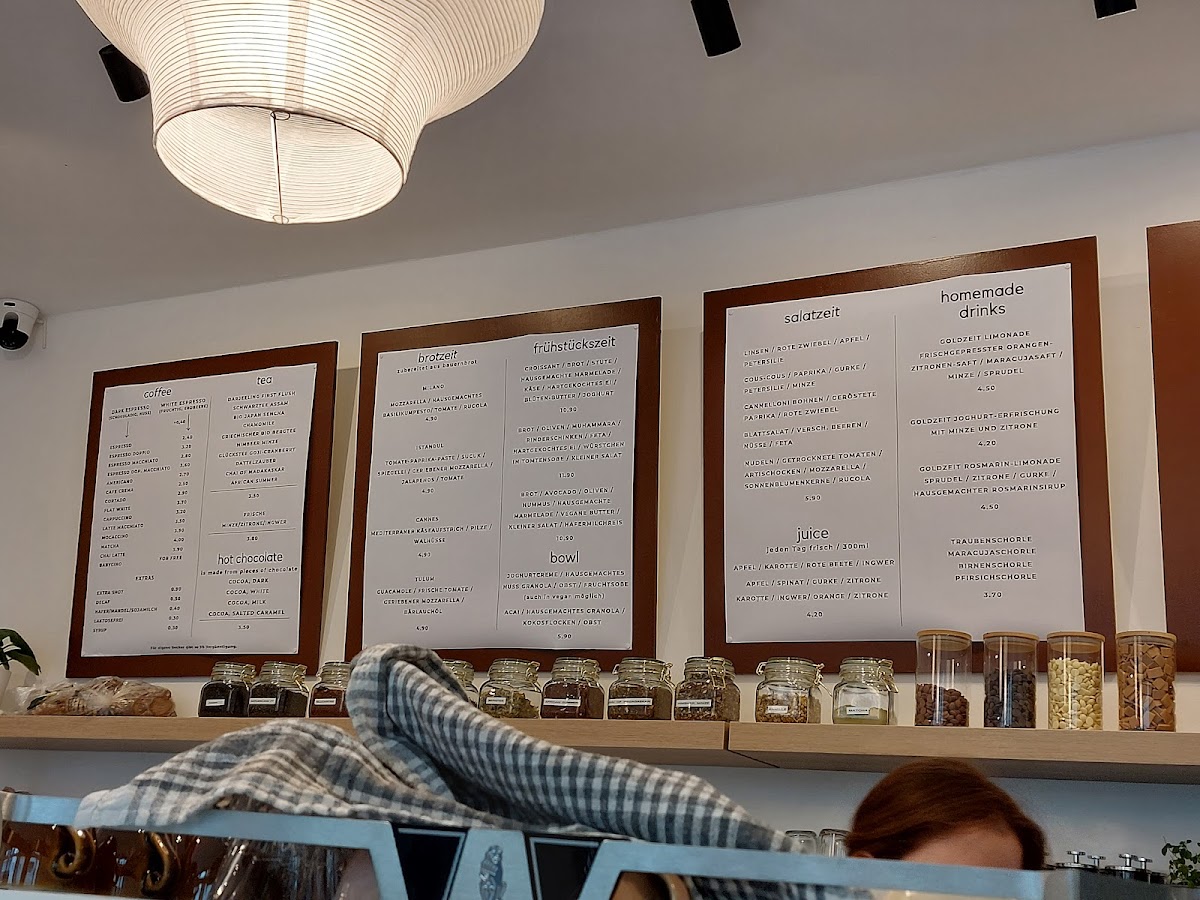 coffee
DARK ESPRESSO
(SCHOKOLADIG, NUSS)
WHITE ESPRESSO
(FRUCHTIG, ERDBEERE)
+0,40
ESPRESSO 2.40
ESPRESSO DOPPIO 3.20
ESPRESSO MACCHIATO 2.80
ESPRESSO DOP. MACCHIATO 3.60
AMERICANO 2.70
CAFE CREMA 2.90
CORTADO
FLAT WHITE 3.70
CAPPUCCINO 3.20
LATTE MACCHIATO
MOCACCINO
MATCHA
CHAI LATTE 3.90
BABYCINO FOR FREE
EXTRAS
EXTRA SHOT 0.90
DECAF 0.30
HAFER/MANDEL/SOJAMILCH 0.40
LAKTOSEFREI 0.30
SYRUP 0.50
tea
DARJEELING FIRST FLUSH
SCHWARZTEE ASSAM
BIO JAPAN SENCHA
CHAMOMILE
GRIECHISCHER BIO BERGTEE
HIMBEER MINZE
GLÜCKSTEE GOJI-CRANBERRY
DATTELZAUBER
CHAI OF MADAKASKAR
AFRICAN SUMMER
3.50
FRISCHE
MINZE/ZITRONE/INGWER
3.80
hot chocolate
is made from pieces of chocolate
COCOA, DARK
COCOA, WHITE
COCOA, MILK
COCOA, SALTED CARAMEL
3.50
brotzeit
zubereitet aus bauernbrot
MILANO
MOZZARELLA / HAUSGEMACHTES
BASILIKUMPESTO/ TOMATE / RUCOLA
4.90
ISTANBUL
TOMATE-PAPRIKA-PASTE / SUCUK /
SPIEGELEI / GERIEBENER MOZZARELLA /
JALAPENOS / TOMATE
4.90
CANNES
MEDITERRANER KÄSEAUFSTRICH / PILZE /
WALNÜSSE
4.90
TULUM
GUACAMOLE / FRISCHE TOMATE /
GERIEBENER MOZZARELLA /
BÄRLAUCHÖL
4.90
frühstückszeit
CROISSANT / BROT / STUTE /
HAUSGEMACHTE MARMELADE /
KÄSE / HARTGEKOCHTES EI /
BLÜTEN-BUTTER / JOGHURT
10.90
BROT / OLIVEN / MUHAMMARA /
RINDERSCHINKEN / FETA /
HARTGEKOCHTES EI / WÜRSTCHEN
IN TOMTENSOßE / KLEINER SALAT
11.90
BROT / AVOCADO / OLIVEN /
HUMMUS / HAUSGEMACHTE
MARMELADE / VEGANE BUTTER /
KLEINER SALAT / HAFERMILCHREIS
10.90
bowl
JOGHURTCREME / HAUSGEMACHTES
NUSS GRANOLA / OBST / FRUCHTSOßE
(auch in vegan möglich)
ACAI / HAUSGEMACHTES GRANOLA /
KOKOSFLOCKEN / OBST
5.90
salatzeit
LINSEN / ROTE ZWIEBEL / APFEL /
PETERSILIE
COUS-COUS / PAPRIKA / GURKE /
PETERSILIE / MINZE
CANNELLONI BOHNEN / GERÖSTETE
PAPRIKA / ROTE ZWIEBEL
BLATTSALAT / VERSCH. BEEREN /
NÜSSE / FETA
NUDELN / GETROCKNETE TOMATEN /
ARTISCHOCKEN / MOZZARELLA /
SONNENBLUMENKERNE / RUCOLA
5.90
juice
jeden Tag frisch / 300ml
APFEL / KAROTTE / ROTE BEETE / INGWER
APFEL / SPINAT / GURKE / ZITRONE
KAROTTE / INGWER/ ORANGE / ZITRONE
4.20
homemade
drinks
GOLDZEIT LIMONADE
FRISCHGEPRESSTER ORANGEN-
ZITRONEN-SAFT / MARACUJASAFT /
MINZE / SPRUDEL
4.50
GOLDZEIT JOGHURT-ERFRISCHUNG
MIT MINZE UND ZITRONE
4.20
GOLDZEIT ROSMARIN-LIMONADE
SPRUDEL / ZITRONE / GURKE /
HAUSGEMACHTER ROSMARINSIRUP
4.50
TRAUBENSCHORLE
MARACUJASCHORLE
BIRNENSCHORLE
PFIRSICHSCHORLE
3.70